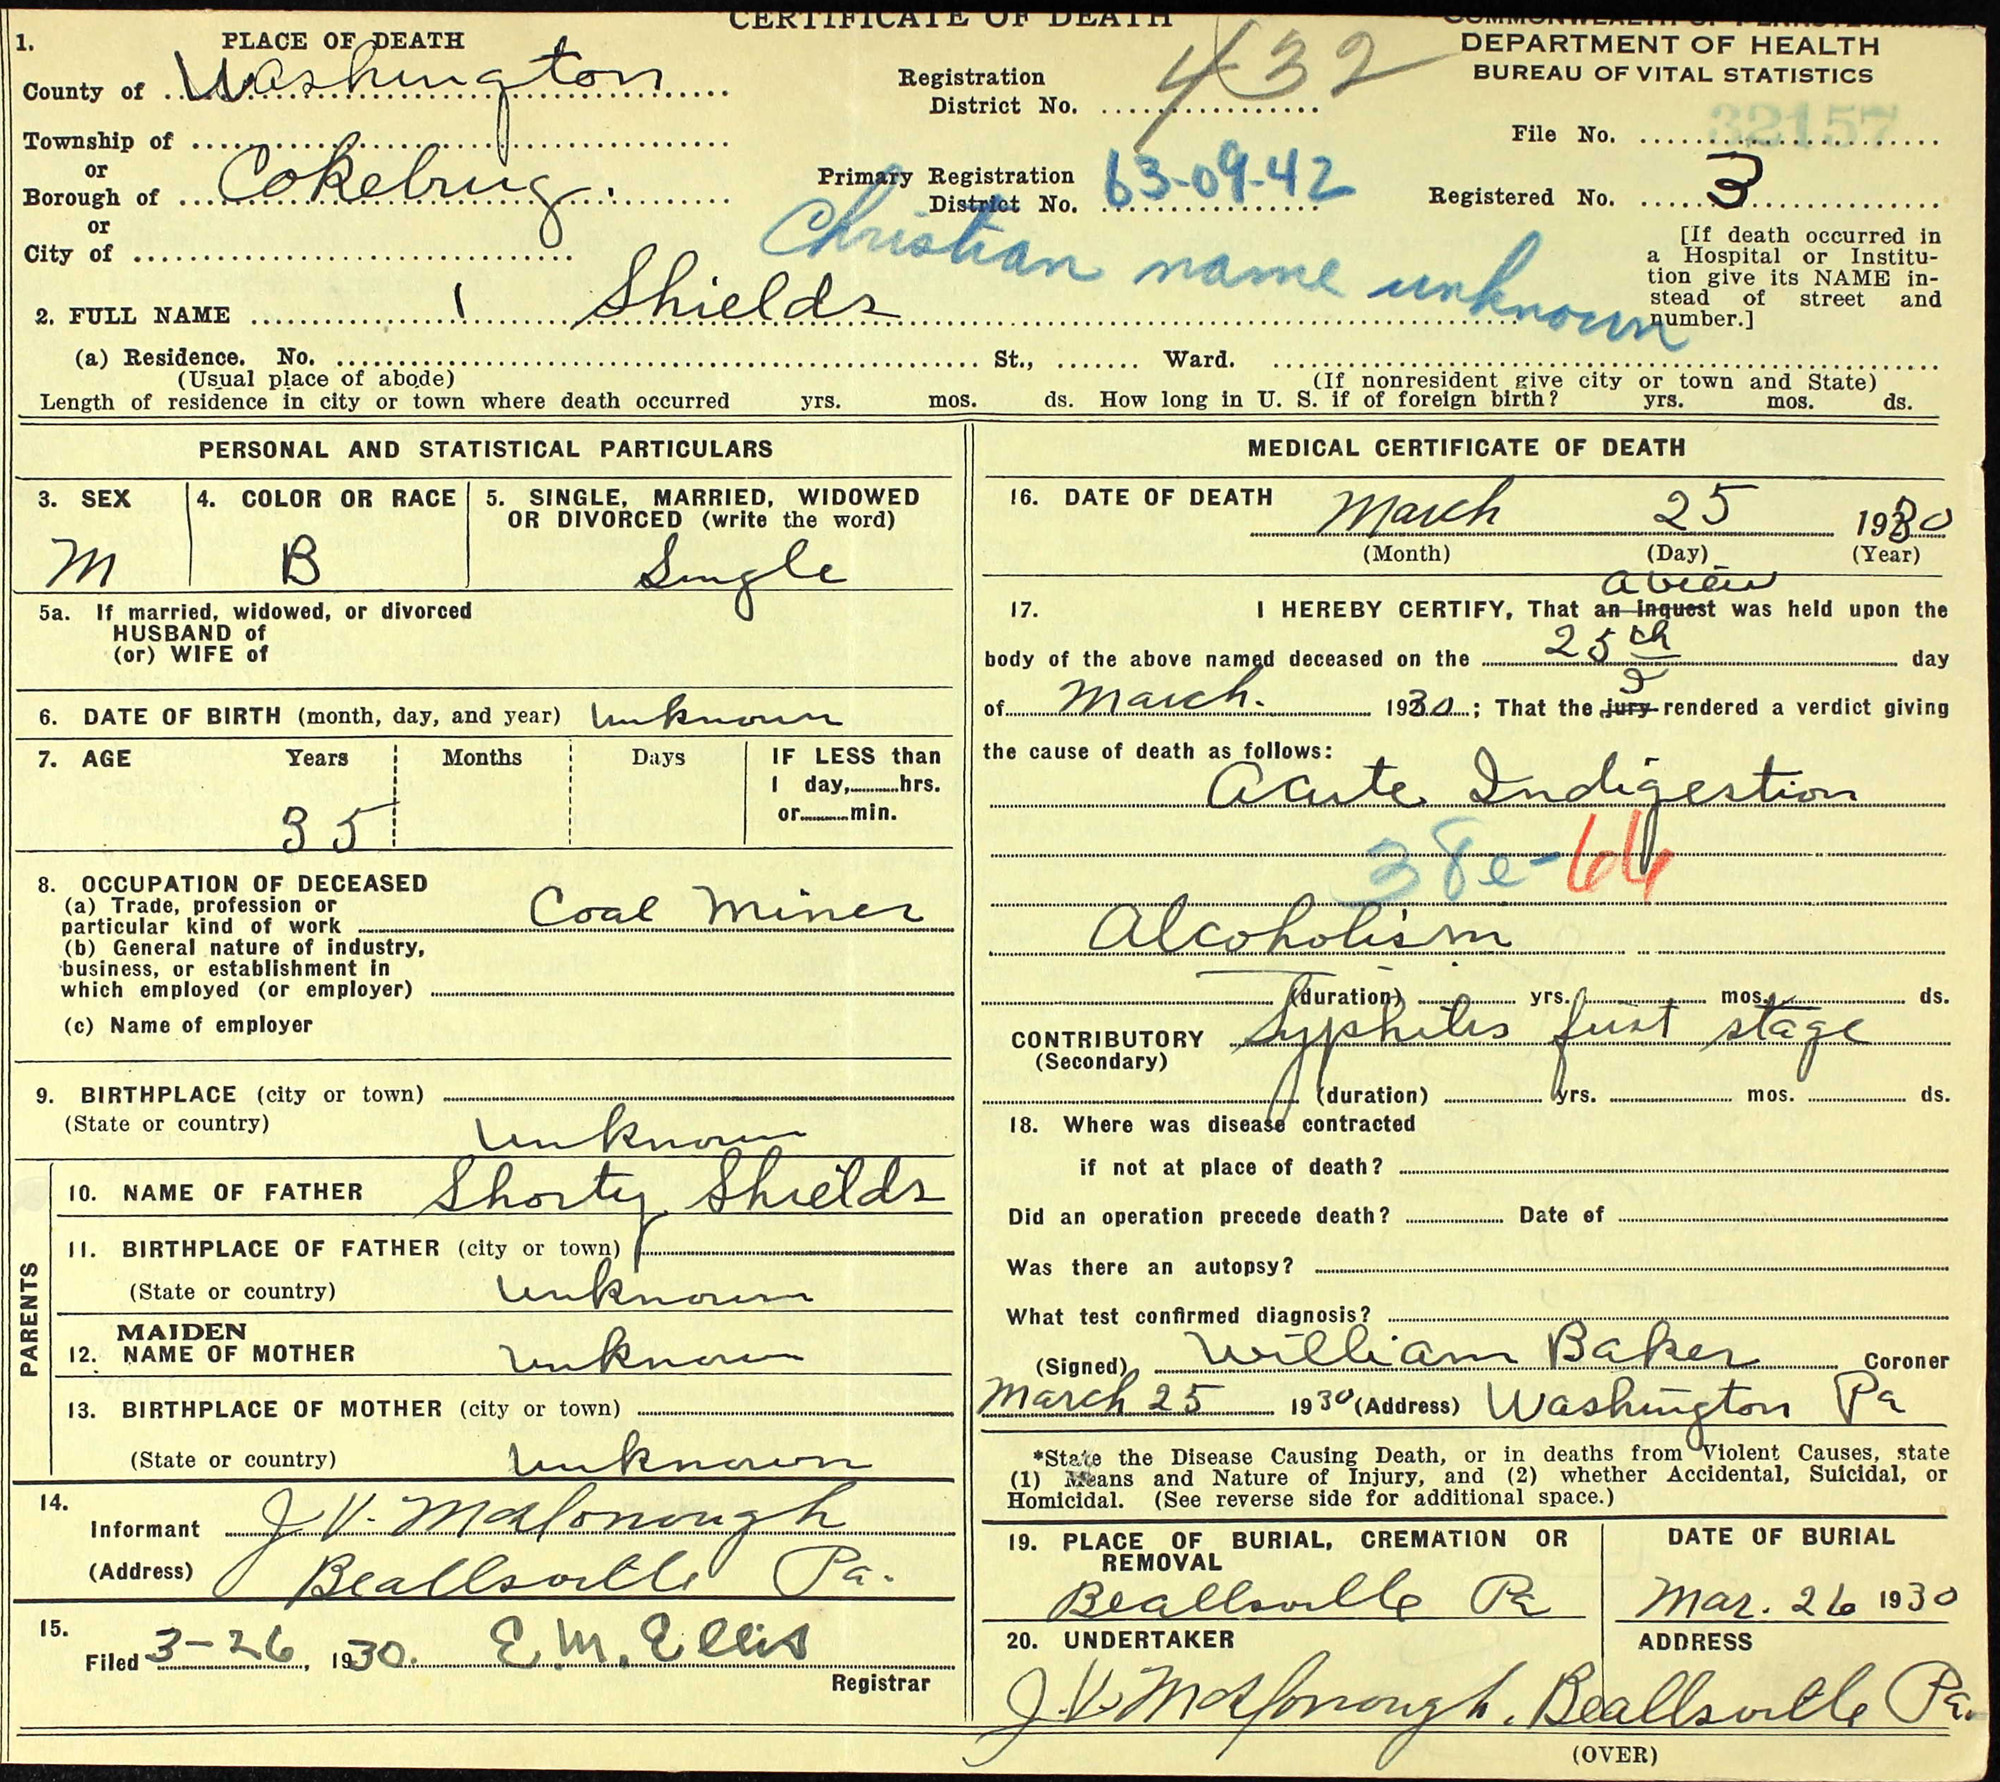 CERTIFICATE OF DEATH
COMMONWEALTH OF PENNSYLVANIA
DEPARTMENT OF HEALTH
BUREAU OF VITAL STATISTICS
1. PLACE OF DEATH
County of Washington
Township of
or
Borough of Cokeburg.
or
City of
Registration
District No. 432
Primary Registration
District No. 63-09-42
File No. 32157
Registered No. 3
Christian name unknown
[If death occurred in
a Hospital or Institu-
tion give its NAME in-
stead of street and
number.]
2. FULL NAME Shields
(a) Residence. No. St., Ward.
(Usual place of abode) (If nonresident give city or town and State)
Length of residence in city or town where death occurred yrs. mos. ds. How long in U. S. if of foreign birth? yrs. mos. ds.
PERSONAL AND STATISTICAL PARTICULARS
3. SEX
M
4. COLOR OR RACE
B
5. SINGLE, MARRIED, WIDOWED
OR DIVORCED (write the word)
Single
5a. If married, widowed, or divorced
HUSBAND of
(or) WIFE of
6. DATE OF BIRTH (month, day, and year) unknown
7. AGE Years Months Days IF LESS than
1 day, hrs.
or min.
35
8. OCCUPATION OF DECEASED
(a) Trade, profession or
particular kind of work Coal Miner
(b) General nature of industry,
business, or establishment in
which employed (or employer)
(c) Name of employer
9. BIRTHPLACE (city or town)
(State or country) unknown
PARENTS
10. NAME OF FATHER Shorty Shields
11. BIRTHPLACE OF FATHER (city or town)
(State or country) unknown
MAIDEN
12. NAME OF MOTHER unknown
13. BIRTHPLACE OF MOTHER (city or town)
(State or country) unknown
14.
Informant J V. McDonough
(Address) Beallsville Pa.
15.
Filed 3-26, 1930. E. M. Ellis
Registrar
MEDICAL CERTIFICATE OF DEATH
16. DATE OF DEATH March 25 1930
(Month) (Day) (Year)
a view
17. I HEREBY CERTIFY, That an inquest was held upon the
body of the above named deceased on the 25th day
I
of March. 1930; That the jury rendered a verdict giving
the cause of death as follows:
Acute Indigestion
38e-66
Alcoholism
(duration) yrs. mos. ds.
CONTRIBUTORY Syphilis first stage
(Secondary)
(duration) yrs. mos. ds.
18. Where was disease contracted
if not at place of death?
Did an operation precede death? Date of
Was there an autopsy?
What test confirmed diagnosis?
(Signed) William Baker Coroner
March 25 1930 (Address) Washington Pa
*State the Disease Causing Death, or in deaths from Violent Causes, state
(1) Means and Nature of Injury, and (2) whether Accidental, Suicidal, or
Homicidal. (See reverse side for additional space.)
19. PLACE OF BURIAL, CREMATION OR
REMOVAL
Beallsville Pa
DATE OF BURIAL
Mar. 26 1930
20. UNDERTAKER ADDRESS
J. V. McDonough. Beallsville Pa.
(OVER)